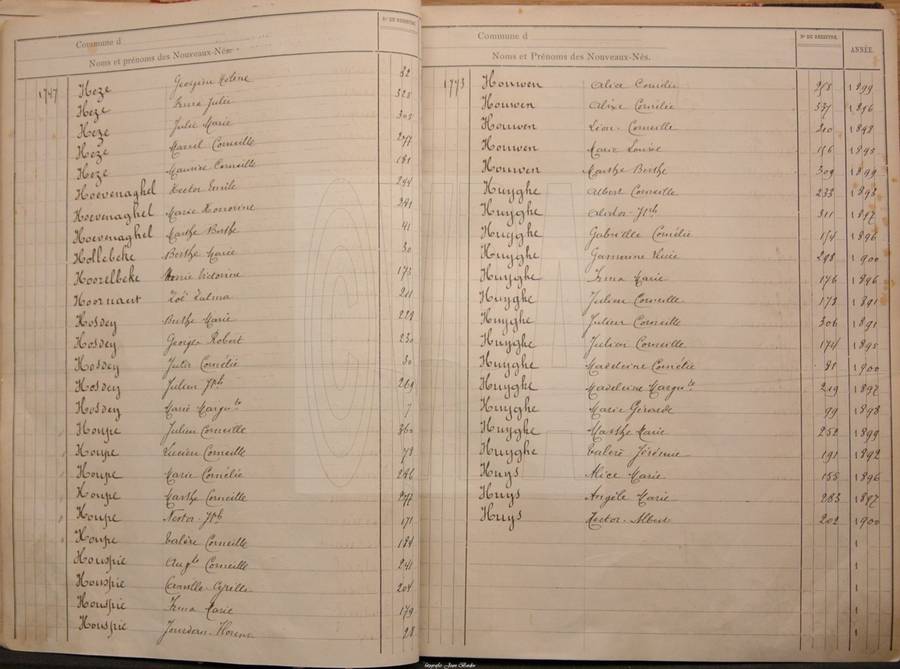 Commune d
Noms et prénoms des Nouveaux-Nés.
Nº DE REGISTRE
1747 Heze Georgine Helène 32
Heze Irma Julie 328
Heze Julie Marie 305
Heze Marcel Corneille 277
Heze Maurice Corneille 181
Hoevenaghel Hector Emile 244
Hoevenaghel Marie Honorine 291
Hoevenaghel Marthe Berthe 41
Hollebeke Berthe Marie 30
Hoorelbeke Marie Victorine 173
Hoornaut Zoë Zulma 211
Hosdey Berthe Marie 229
Hosdey Georges Robert 230
Hosdey Jules Cornélie 30
Hosdey Julien Jph 269
Hosdey Marie Margte 7
Houpe Julien Corneille 360
Houpe Lucien Corneille 78
Houpe Marie Cornélie 296
Houpe Marthe Corneille 277
Houpe Nestor Jph 171
Houpe Valère Corneille 184
Houspie Augte Corneille 241
Houspie Camille Cyrille 204
Houspie Irma Marie 179
Houspie Florent 28
Commune d
Noms et Prénoms des Nouveaux-Nés.
Nº DE REGISTRE
ANNÉE
1773 Houwen Alice Cornélie 258 1899
Houwen Alixe Cornélie 337 1896
Houwen Léon Corneille 210 1898
Houwen Marie Louise 156 1895
Houwen Marthe Berthe 309 1899
Huyghe Albert Corneille 233 1898
Huyghe Alidor Jph 311 1897
Huyghe Gabrielle Cornélie 154 1896
Huyghe Germaine Lucie 298 1900
Huyghe Irma Marie 176 1896
Huyghe Julien Corneille 173 1891
Huyghe Julien Corneille 306 1891
Huyghe Julien Corneille 174 1895
Huyghe Madeleine Cornélie 81 1900
Huyghe Madeleine Margte 219 1897
Huyghe Marie Gérarde 99 1898
Huyghe Marthe Marie 252 1899
Huyghe Valère Jérémie 191 1892
Huys Alice Marie 155 1896
Huys Angèle Marie 283 1897
Huys Hector Albert 202 1900
1
1
1
1
1
Copyright Jean Bardin